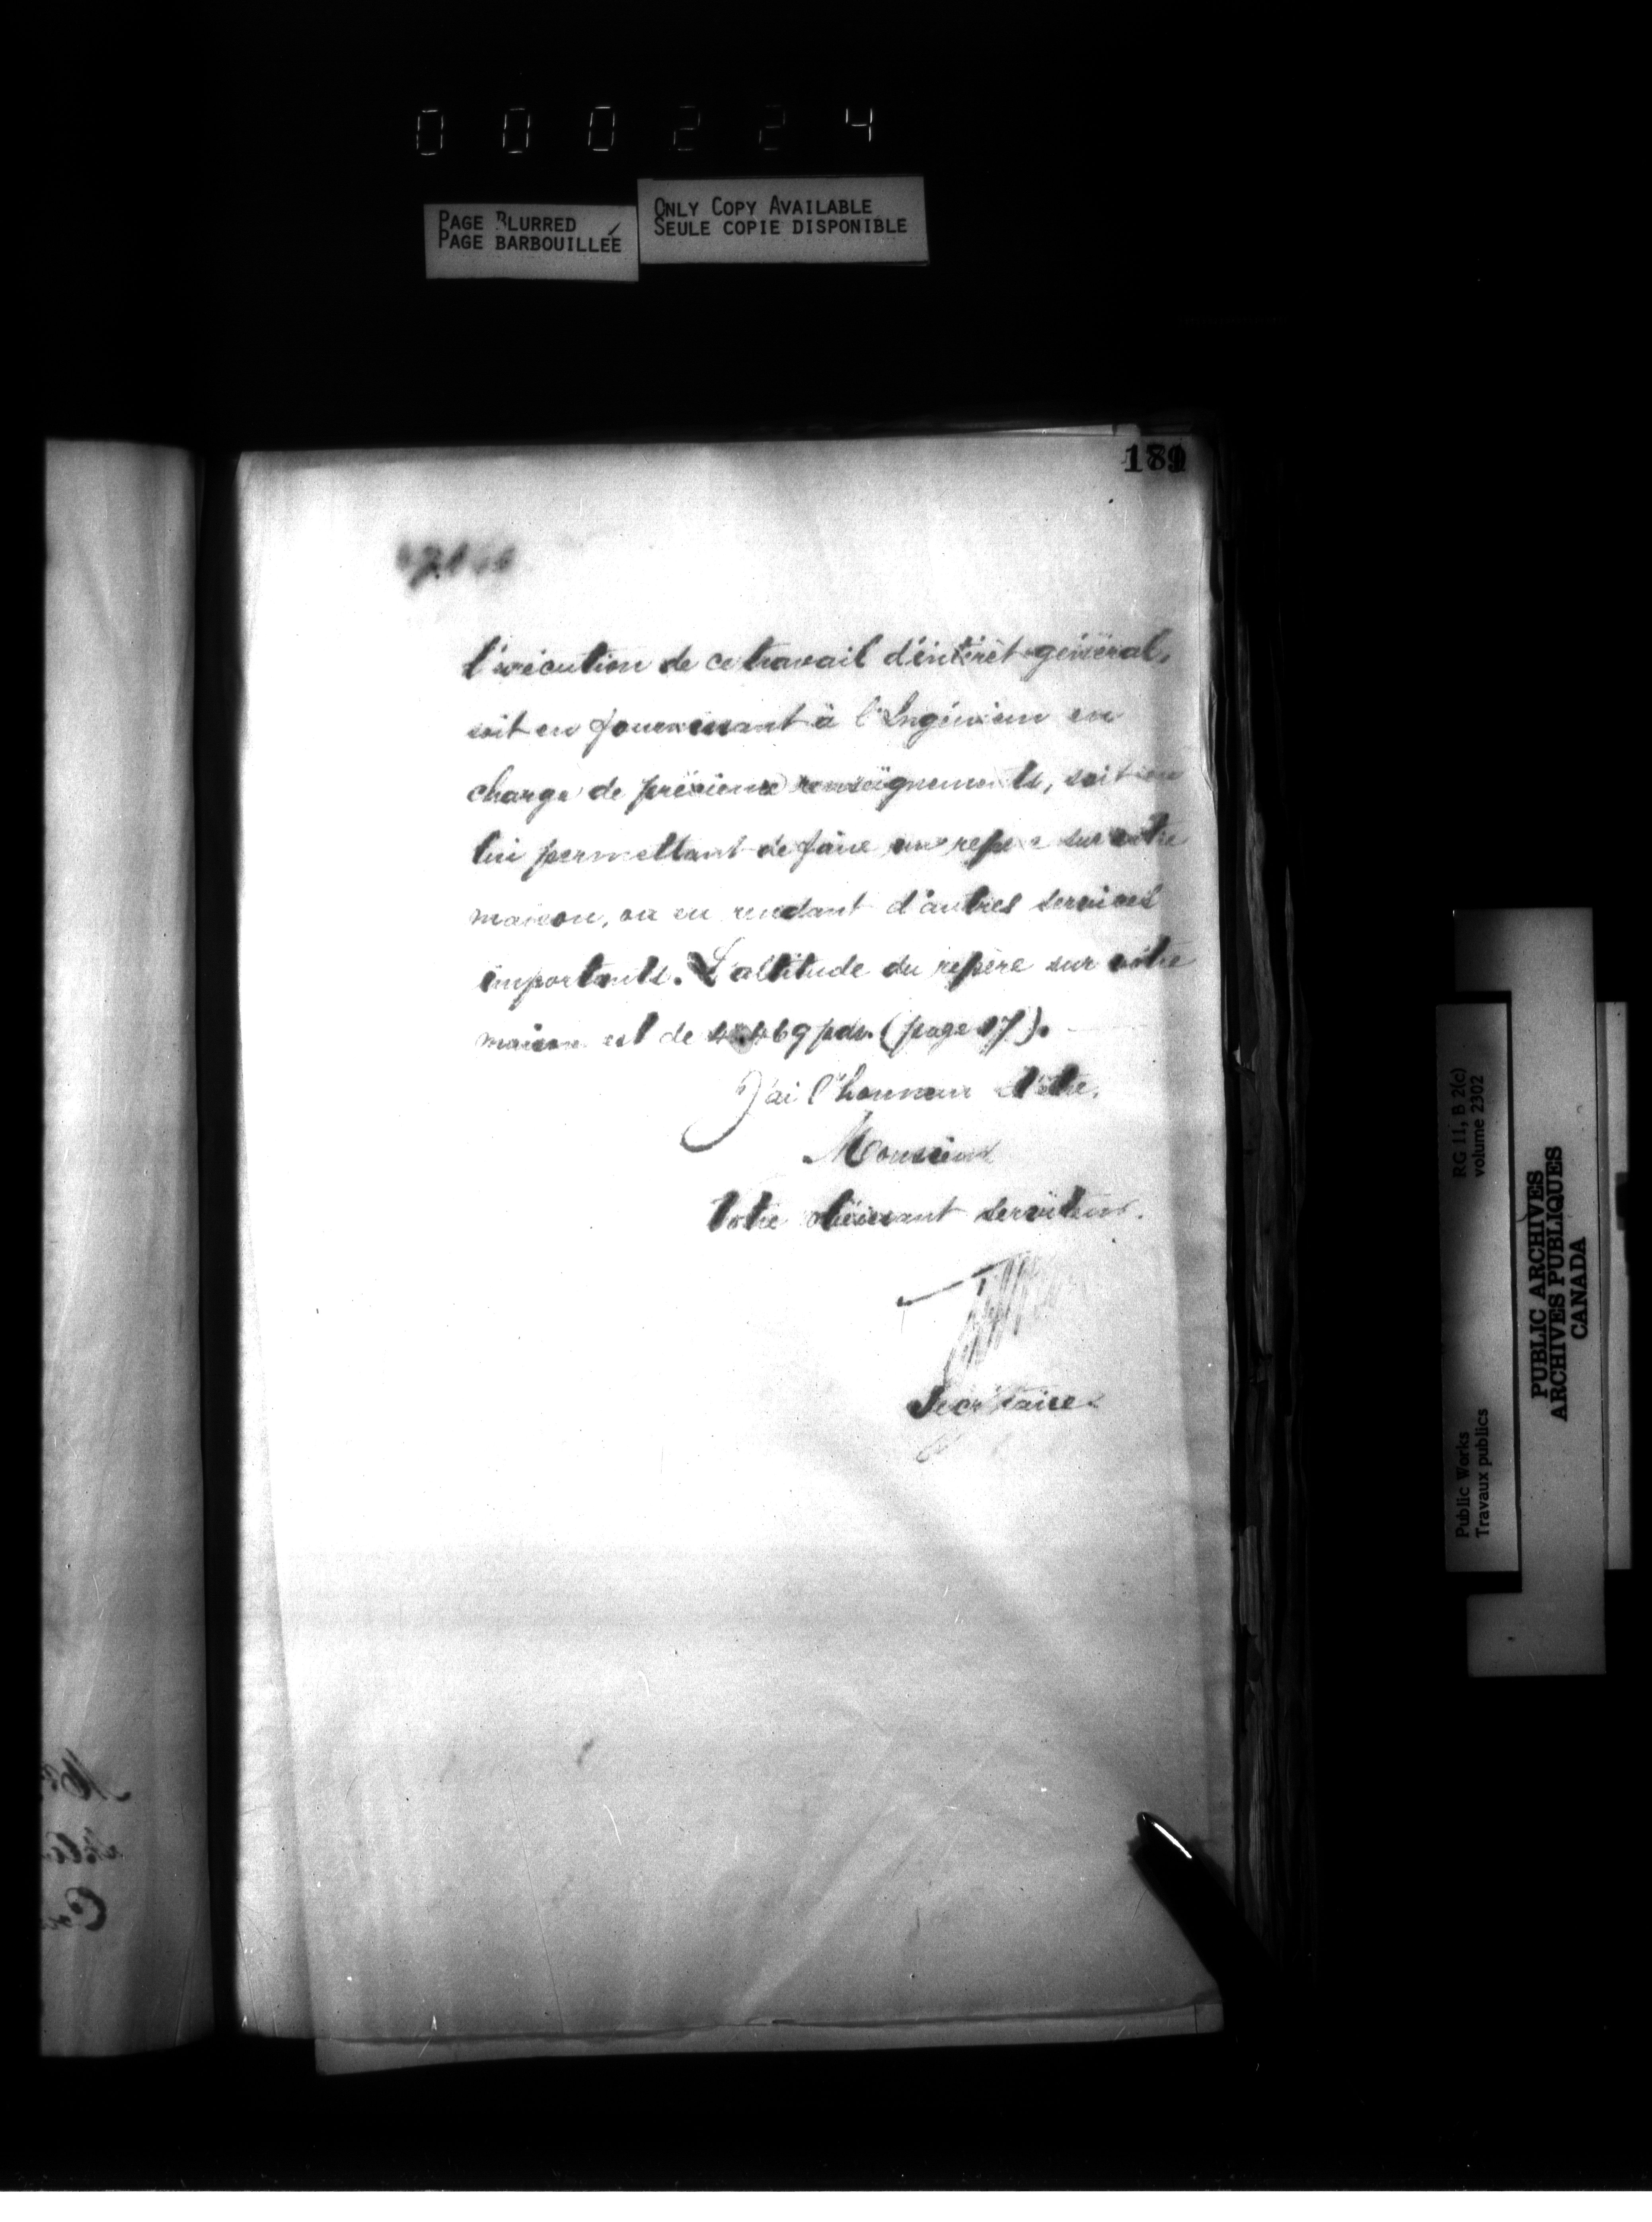 000224
PAGE BLURRED
PAGE BARBOUILLÉE
ONLY COPY AVAILABLE
SEULE COPIE DISPONIBLE
l'exécution de ce travail d'intérêt général,
soit en fournissant à l'Ingénieur en
charge de précieux renseignements, soit en
lui permettant de faire un repère sur votre
maison, ou en rendant d'autres services
importants. L'altitude du repère sur votre
maison est de pds. (page 17).
J'ai l'honneur d'être,
Monsieur
Votre obéissant serviteur.
Secrétaire
RG 11, B 2(c)
volume 2302
Public Works
Travaux publics
PUBLIC ARCHIVES
ARCHIVES PUBLIQUES
CANADA